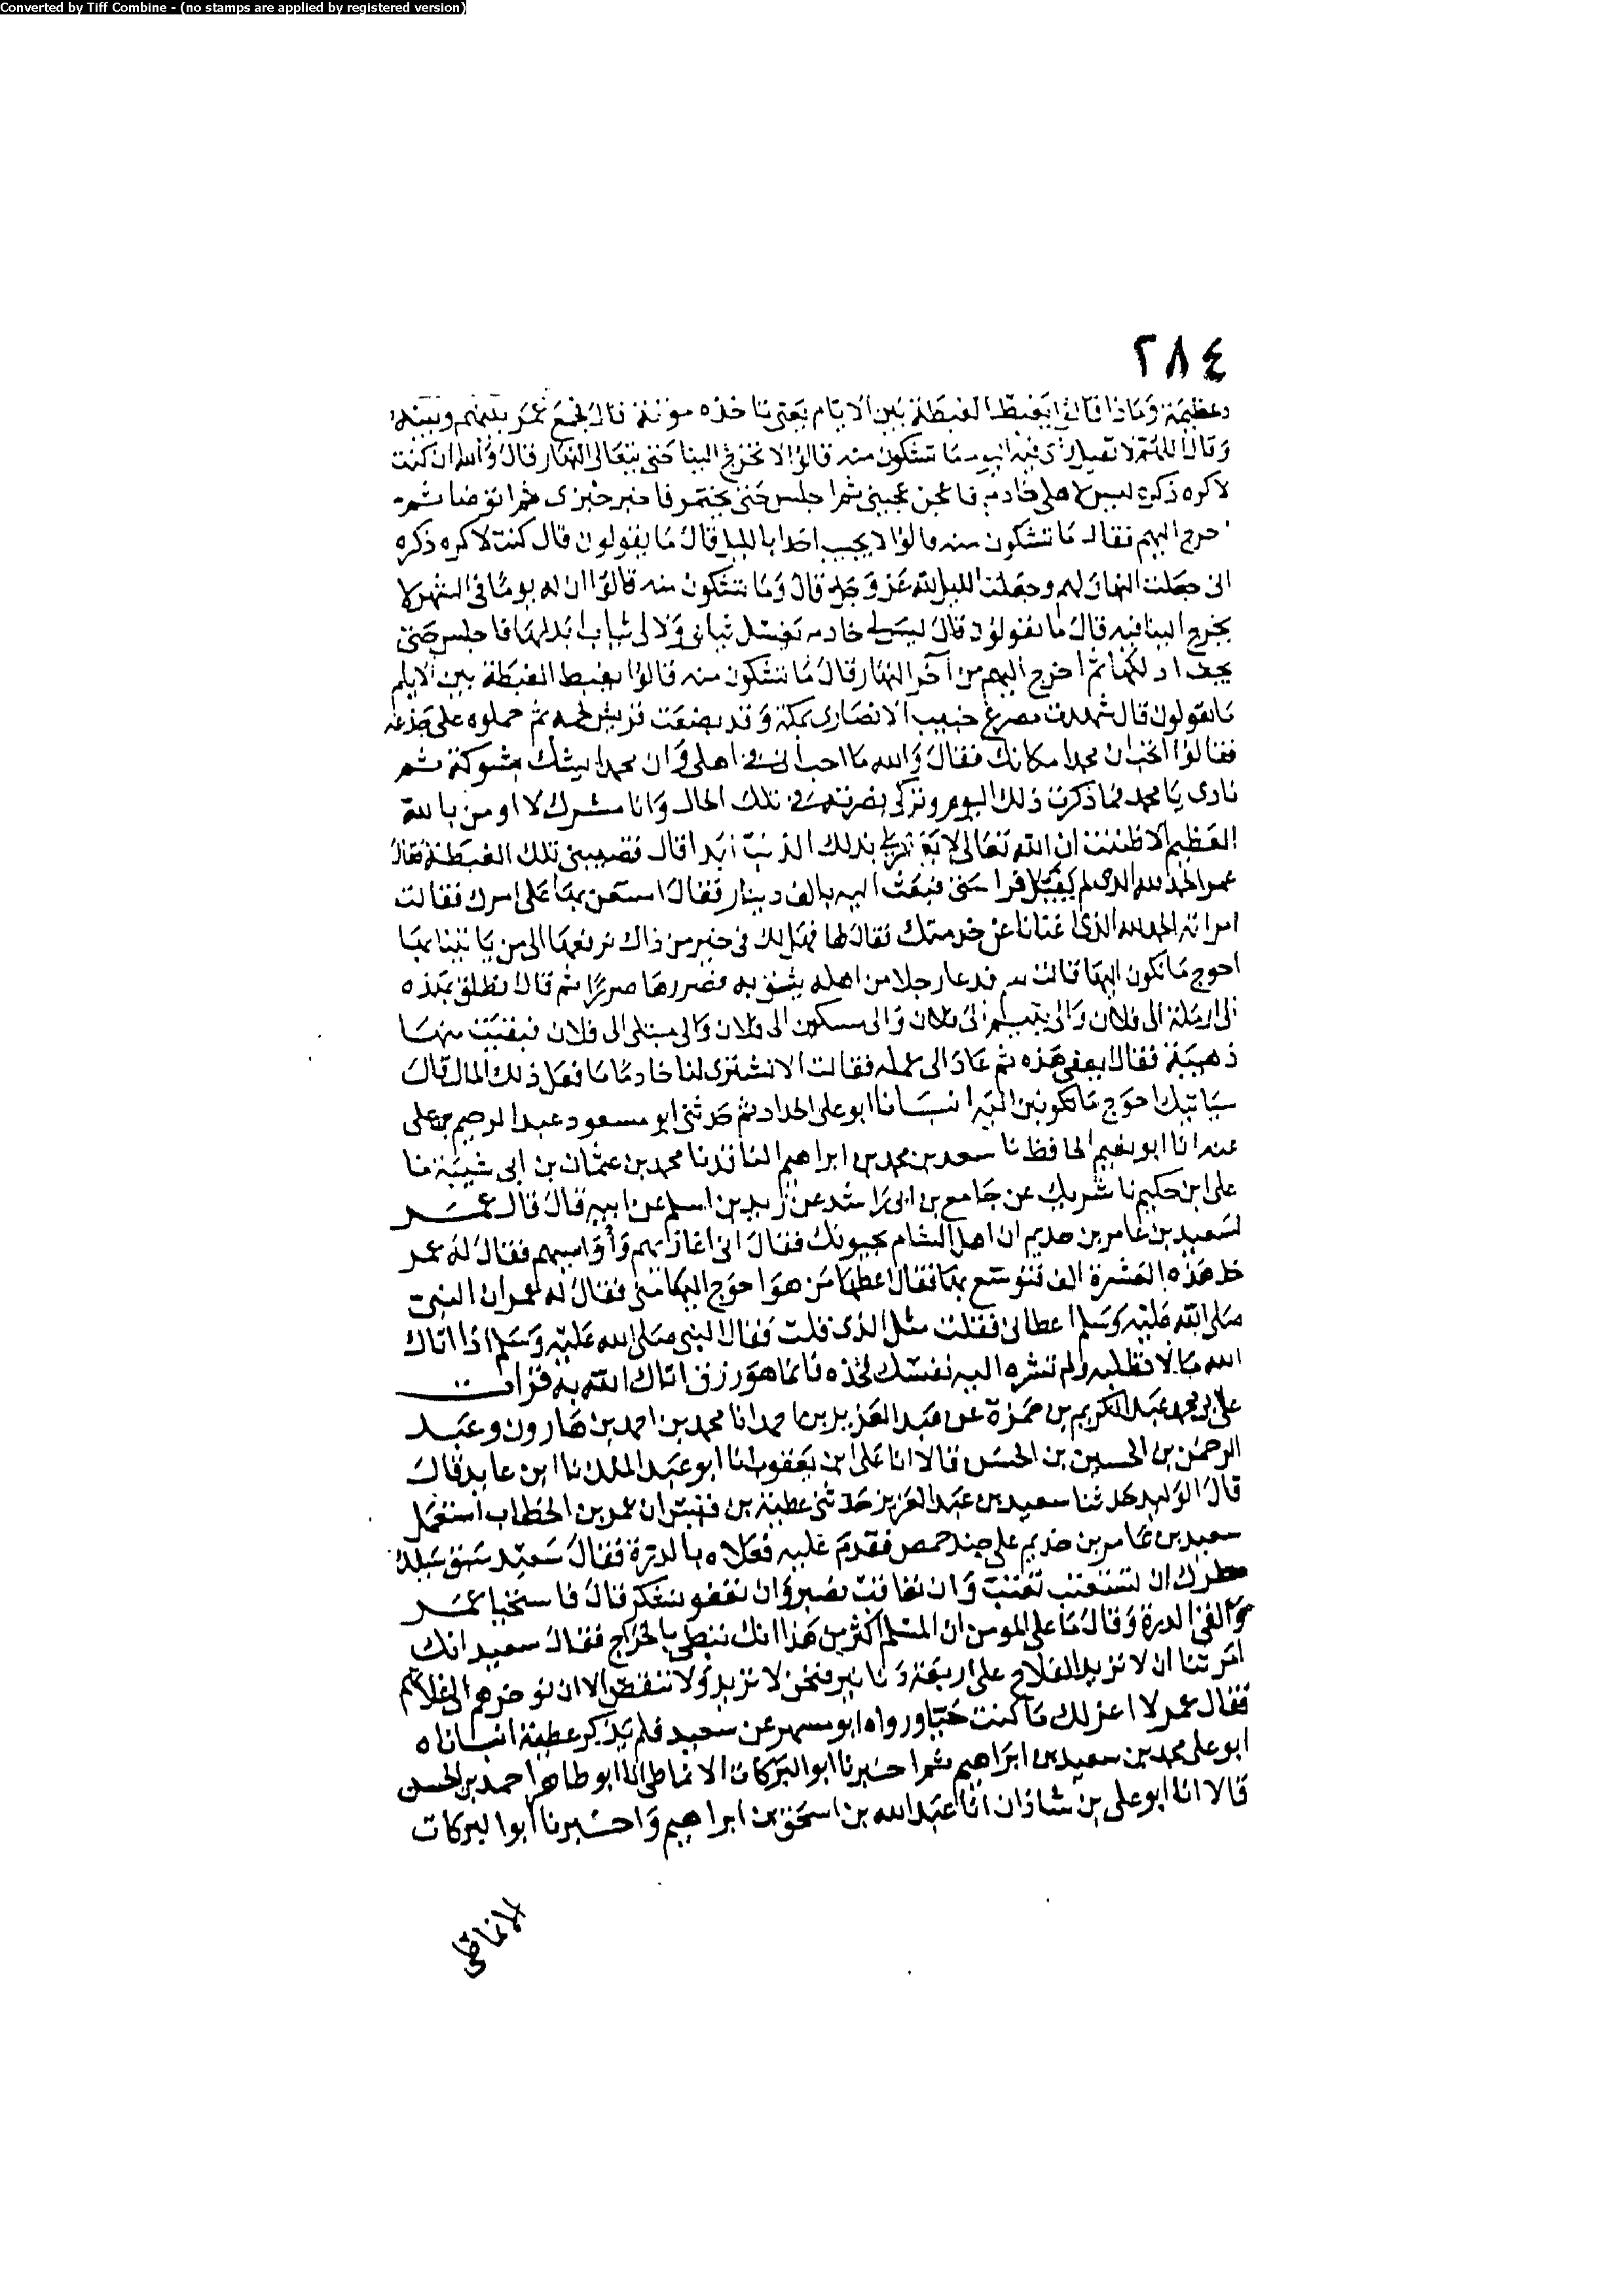 Converted by Tiff Combine - (no stamps are applied by registered version)
٢٨٤
وعظيمة وماذا قالوا يغبط الغبطة بين الايام يعني تاخذه موتة قال فجمع عمر بينهم وبينه
وقال اللهم لا تفيل رأيي فيه اليوم ما تشكون منه قالوا لا يخرج الينا حتى يتعالى النهار قال والله ان كنت
لاكره ذكره ليس لاهلي خادم فاعجن عجيني ثم اجلس حتى يختمر فاخبز خبزي ثم اتوضا ثم
اخرج اليهم فقال ما تشكون منه قالوا لا يجيب احدا بالليل قال ما يقولون قال كنت لاكره ذكره
اني جعلت النهار لهم وجعلت الليل لله عز وجل قال وما تشكون منه قالوا ان له يوما في الشهر لا
يخرج الينا فيه قال ما يقولون قال ليس لي خادم يغسل ثيابي ولا لي ثياب ابدلها فاجلس حتى
يجف ادلكها ثم اخرج اليهم من آخر النهار قال ما تشكون منه قالوا يغبط الغبطة بين الايام
ما يقولون قال شهدت مصرع خبيب الانصاري بمكة وقد بضعت قريش لحمه ثم حملوه على جذعه
فقالوا اتحب ان محمدا مكانك فقال والله ما احب اني في اهلي وان محمدا يشك بشوكة ثم
نادى يا محمد فما ذكرت ذلك اليوم وتركي نصرته في تلك الحال وانا مشرك لا اومن بالله
العظيم الا ظننت ان الله تعالى لا يغفر لي بذلك الذنب ابدا قال فتصيبني تلك الغبطة فقال
عمر الحمد لله الذي لم يفيل فراستي فبعث اليه بالف دينار فقال استعن بها على امرك فقالت
امراته الحمد لله الذي اغنانا عن خدمتك فقال لها فهل لك في خير من ذاك ندفعها الى من ياتينا بها
احوج ما نكون اليها قالت نعم فدعا رجلا من اهله يثق به فصررها صررا ثم قال انطلق بهذه
الى ارملة ال فلان والى يتيم ال فلان والى مسكين ال فلان والى مبتلى ال فلان فبقيت منها
ذهيبة فقال انفقي هذه ثم عاد الى عمله فقالت الا تشتري لنا خادما ما فعل ذلك المال قال
سياتيك احوج ما تكونين اليه انبانا ابو علي الحداد ثم حدثني ابو مسعود عبد الرحيم بن علي
عنه انا ابو نعيم الحافظ نا سعد بن محمد بن ابراهيم الناقد نا محمد بن عثمان بن ابي شيبة نا
علي ابن حكيم نا شريك عن جامع بن ابي راشد عن زيد بن اسلم عن ابيه قال قال عمر
لسعيد بن عامر بن حذيم ان اهل الشام يحبونك فقال اني اغازيهم وأواسيهم فقال له عمر
خذ هذه العشرة الف فتوسع بها فقال اعطها من هو احوج اليها مني فقال له عمر ان النبي
صلى الله عليه وسلم اعطاني فقلت مثل الذي قلت فقال النبي صلى الله عليه وسلم اذا اتاك
الله مالا لم تطلبه ولم تشره اليه نفسك فخذه فانما هو رزق اتاك الله به قرات
على ابي محمد عبد الكريم بن حمزة عن عبد العزيز بن احمد انا محمد بن احمد بن هارون وعبد
الرحمن بن الحسين بن الحسن قالا انا علي ابن يعقوب انا ابو عبد الملك نا ابن عايد قال
قال الوليد حدثنا سعيد بن عبد العزيز حدثني عطية بن قيس ان عمر بن الخطاب استعمل
سعيد بن عامر بن حذيم على جند حمص فقدم عليه فعلاه بالدرة فقال سعيد سبق سيلك
مطرك ان تستعتب نعتب وان تعاقب نصبر وان تعفو نشكر قال فاستحيا عمر
والقى الدرة وقال ما على المومن ان المسلم اكثر من هذا انك تبطي بالخراج فقال سعيد انك
امرتنا ان لا نزيد الفلاح على اربعة دنانير فنحن لا نزيد ولا ننقص الا ان نوخرهم الى غلاتهم
فقال عمر لا اعزلك ما كنت حيا ورواه ابو مسهر عن سعيد فلم يذكر عطية انباناه
ابو علي محمد بن سعيد بن ابراهيم ثم اخبرنا ابو البركات الانماطي انا ابو طاهر احمد بن الحسن
قالا انا ابو علي بن شاذان انا عبد الله بن اسحق بن ابراهيم واخبرنا ابو البركات
الانماطي